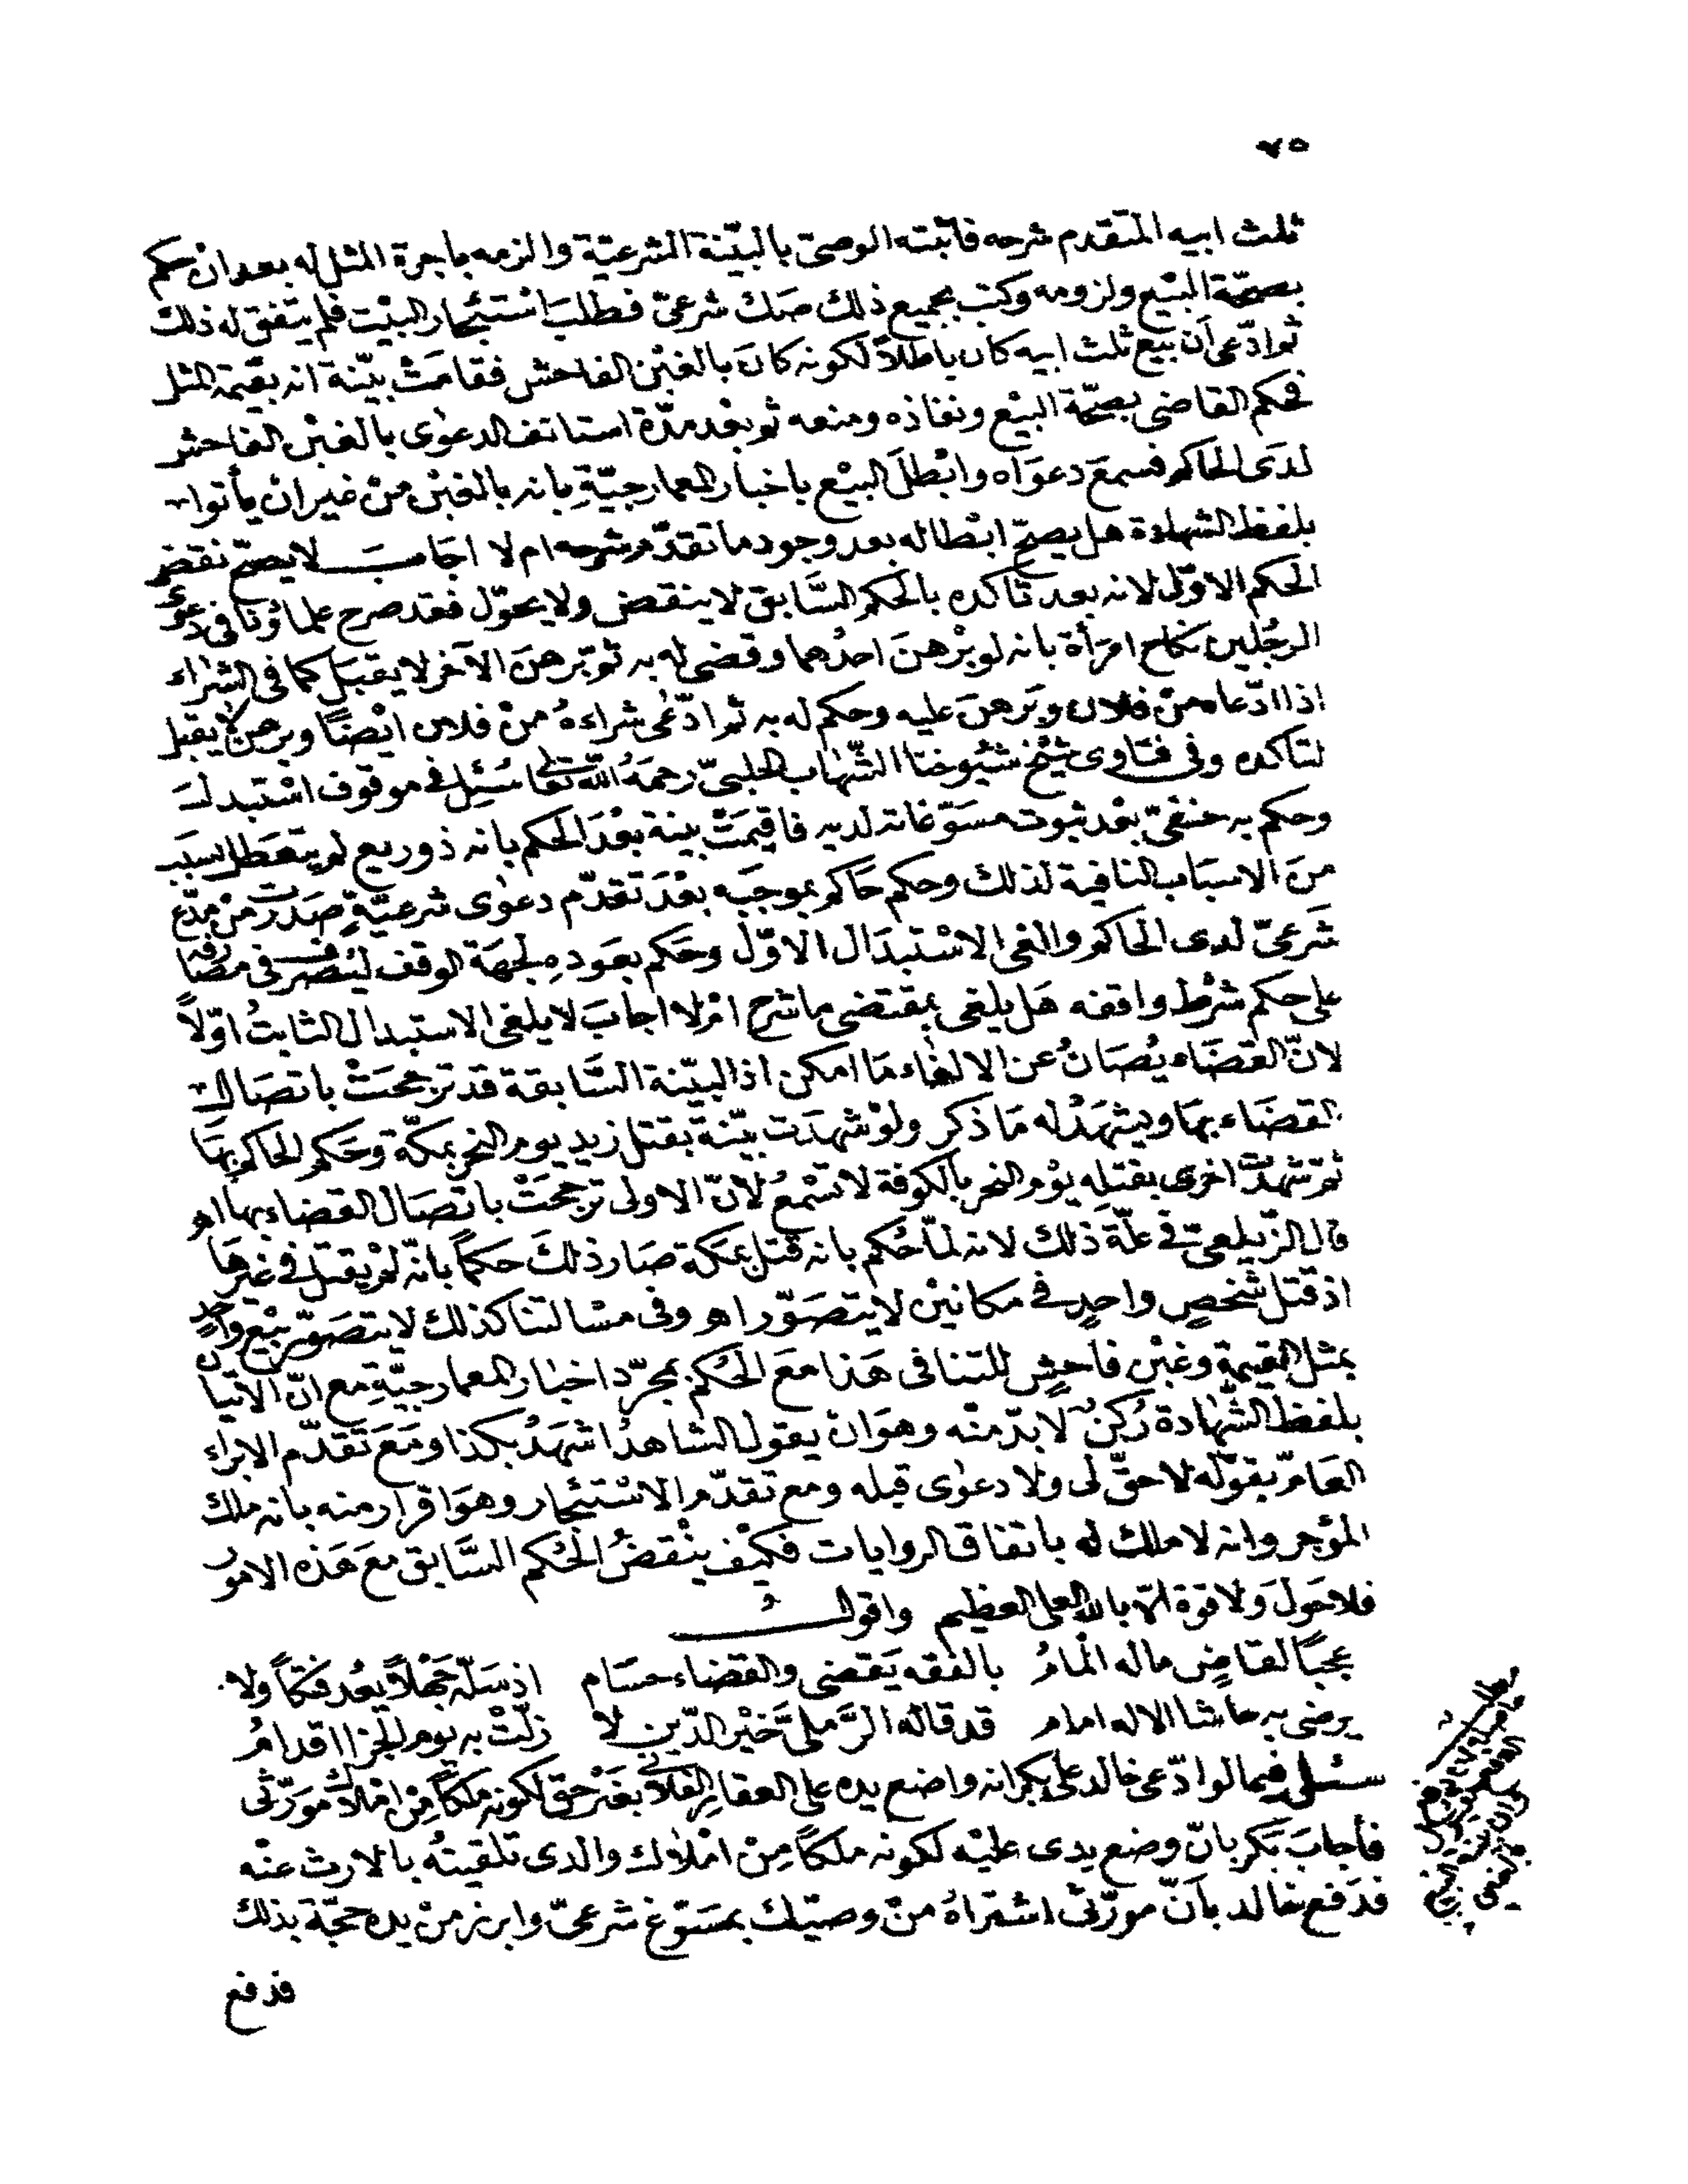 ٧٥
ثلث ابيه المتقدم شرحه فاثبته الوصىّ بالبيّنة الشرعيّة والزمه باجرة المثل له بعد ان حكم
بصحّة البيْع ولزومه وكتب بجميع ذلك صَك شرعىّ فطلبَ اسْتئجار البيْت فلم يتفق له ذلك
ثم ادّعى اَن بيع ثلث ابيه كان باطلاً لكونه كانَ بالغبْن الفاحش فقامَتْ بيّنة انه بقيمة المثل
فحكم القاضى بصحّة البيْع ونفاذه ومنعه ثم بعْد مدّة استانف الدعوٰى بالغبْن الفاحش
لدَى الحاكم فسمعَ دعوَاه وابْطلَ البيْع باخبار المعمارجيّةِ بانه بالغبْن منْ غير ان يأتوا
بلفظ الشهادة هل يصحّ ابْطاله بعد وجود ما تقدّم شرحه ام لا اجَابَ لا يصحّ نقض
الحكم الاوّل لانه بعد تاكده بالحكم السَّابق لا ينقض ولا يحوّل فقد صرح علماؤنا فى دعوى
الرجُلين نكاح امرَأة بانه لو برْهنَ احدُهما وقضى له به ثم برْهنَ الآخر لا يقبَل كما فى الشرٰاء
اذا ادّعاه منْ فلان وبَرهنَ عليه وحكم له به ثم ادّعى شراءهُ منْ فلان ايْضًا وبرهن لا يقبل
لتاكده وفى فتاوى شيْخ شيُوخنا الشّهٰاب الحلبىّ رحمَهُ اللّه تعالى سُئِل فى موقوف اسْتبدلَ
وحكم به حنفىّ بعْد ثبوت مسَوّغاته لديه فاقيمَتْ بينة بعْدَ الحكم بانه ذو ريع لم يتعَطل بسبَب
منَ الاسبَاب النافية لذلك وحكم حَاكم بموجَبه بعْدَ تقدّم دعوٰى شرعيّةٍ صَدرت منْ مدّع
شَرعىّ لدى الحاكم والغى الاسْتبدَال الاوّل وحَكم بعَودِه لجهَة الوقف ليُصْرف فى مصَارفه
على حكم شرْط واقفه هَل يلغى بمقتضى ما شرح امْ لا اجابَ لا يلغى الاستبدال الثابتُ اوّلاً
لانّ القضَاء يُصَانُ عن الالغٰاء مَا امكن اذ البيّنة السَّابقة قد ترجحَتْ باتصَال
القضَاء بهَا ويشهَدْ له مَا ذكر ولوْ شهدَت بيّنة بقتل زيد يوم النحر بمكّة وحَكم الحاكم بهَا
ثمّ شهدَت اخرى بقتلِه يوْم النحر بالكوفة لا تسْمعُ لانّ الاولى ترجحَتْ باتصَال القضاء بها اهـ
قال الزّيلعىّ فى علّة ذلك لانه لمّا حُكم بانه قتل بمكة صَار ذلكَ حكمًا بانّه لمْ يقتل فى غيْرهَا
اذ قتل شخصٍ واحدٍ فى مكانيْن لا يتصَوّر اهـ وفى مسْالتنا كذلك لا يتصَوّر بيْع واحدٌ
بمثل القيمةِ وغبْن فاحشٍ للتنافى هَذا معَ الحُكم بمجرّد اخبَار المعمارجيّةِ مع انّ الاتيان
بلفظ الشّهٰادة رُكنٌ لابدّ منْه وهوَ ان يقول الشاهدُ اشهَدُ بكذا ومَعَ تقدّم الابراء
العَامّ بقوْله لا حقّ لى ولا دعوٰى قبله ومع تقدّم الاسْتئجار وهوَ اقرار منه بانه ملك
المؤجر وانه لا ملك له باتفاق الروايات فكيْف ينْقضُ الحُكم السَّابق معَ هَذه الامور
فلا حَولَ ولا قوة الّا باللّه العلى العظيم واقول
عجبًا لقاضٍ ماله المامُ بالفقه يَقضى والقضاء حسَام اذ سَلّه جَهْلاً يعُد فتكاً ولا
يرضى به حاشا الاله امام قد قاله الرَّملىّ خَيْر الدّين لا زلّتْ به يوم الجزا اقدامُ
سئل فيما لو ادّعى خالد على بكر انه واضع يده على العقار الفلانى بغَيْر حق لكونه ملكًا مِنْ امْلاك مورّثى
فأجابَ بَكر بانّ وضع يدى عليْه لكونه ملكًا مِنْ امْلاك والدى تلقيتُه بالارث عنْه
فدَفع خالد بأنّ مورّثى اشترَاهُ منْ وصيّك بمسَوّغ شرعىّ وابرز منْ يده حجّة بذلك
فدفع